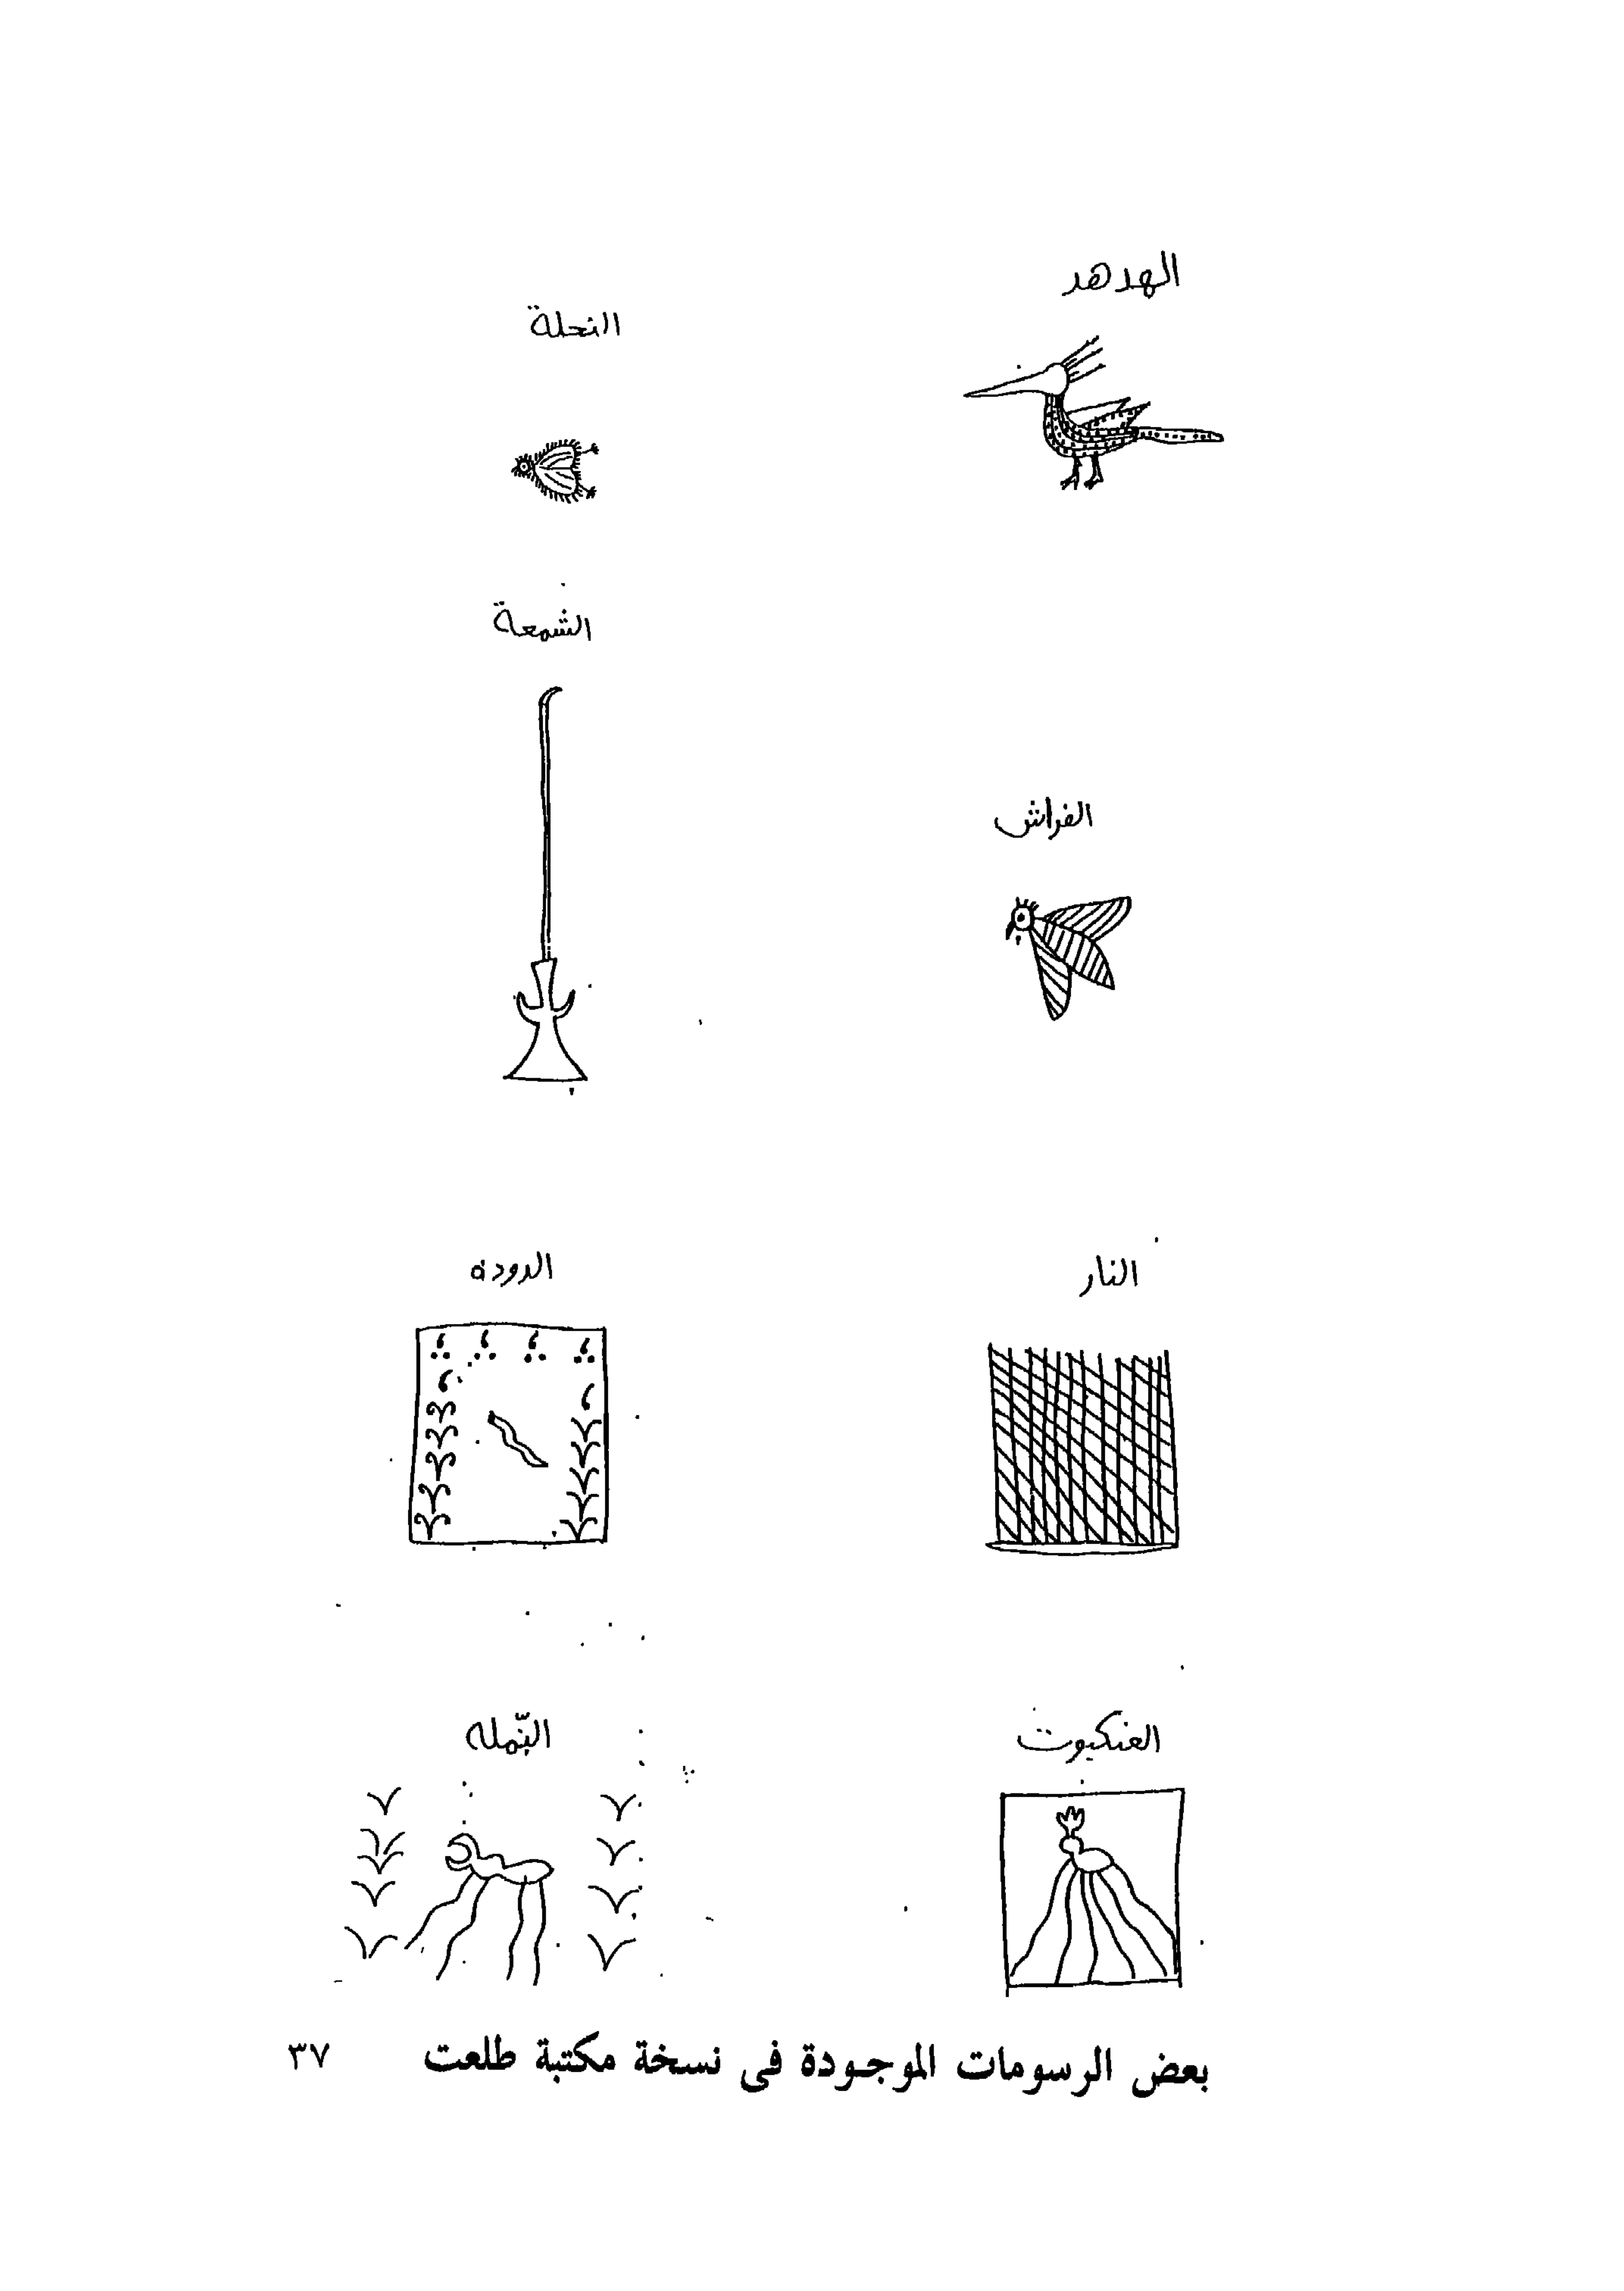 الهدهد
النحلة
الشمعة
الفراش
النار
الدودة
العنكبوت
النّمله
بعض الرسومات الموجودة فى نسخة مكتبة طلعت
٣٧